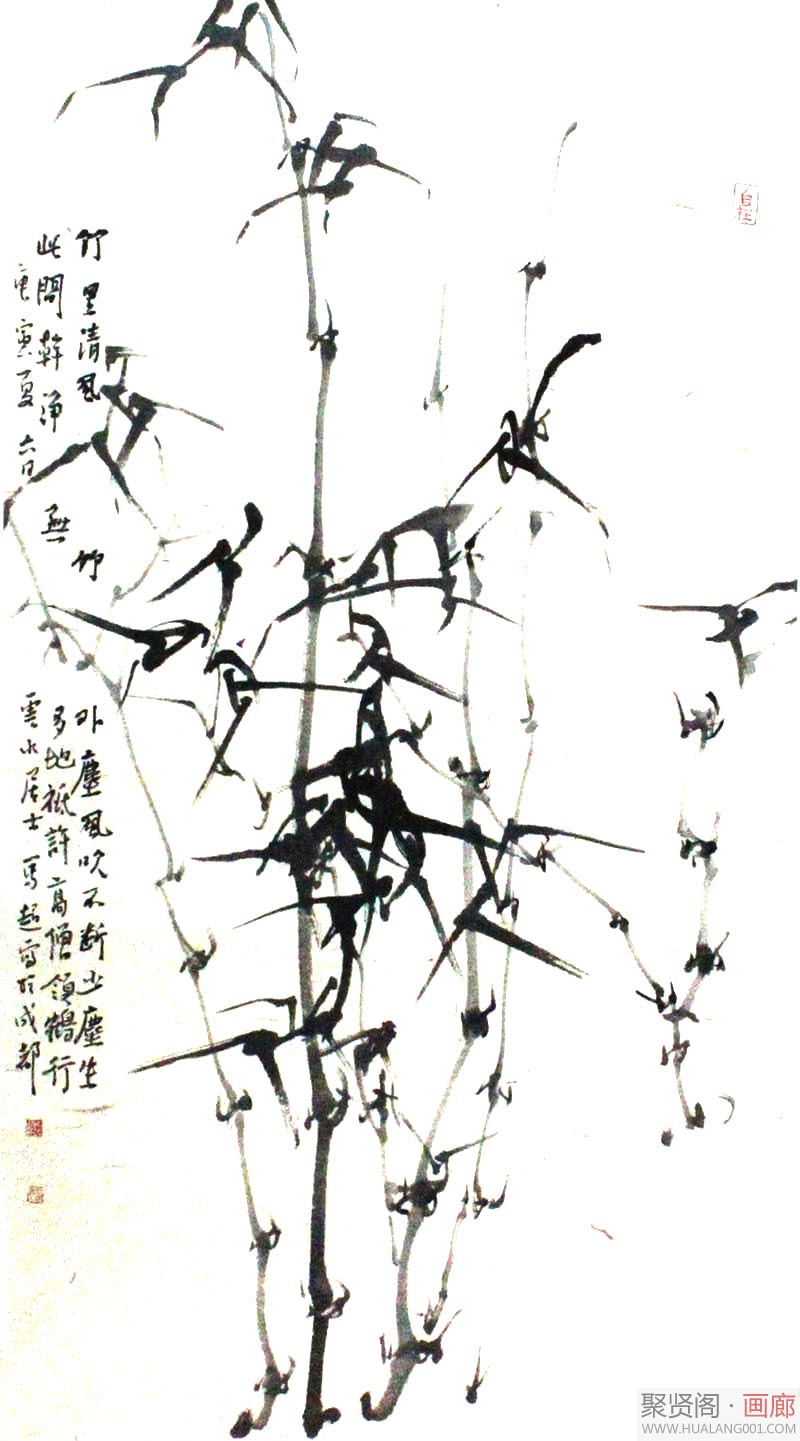 竹里清風竹外塵風吹不断少塵生
此間幹淨無多地祇許高僧領鶴行
庚寅夏六日雲水居士馬超寫於成都
自在
聚贤阁·画廊
WWW.HUALANG001.COM